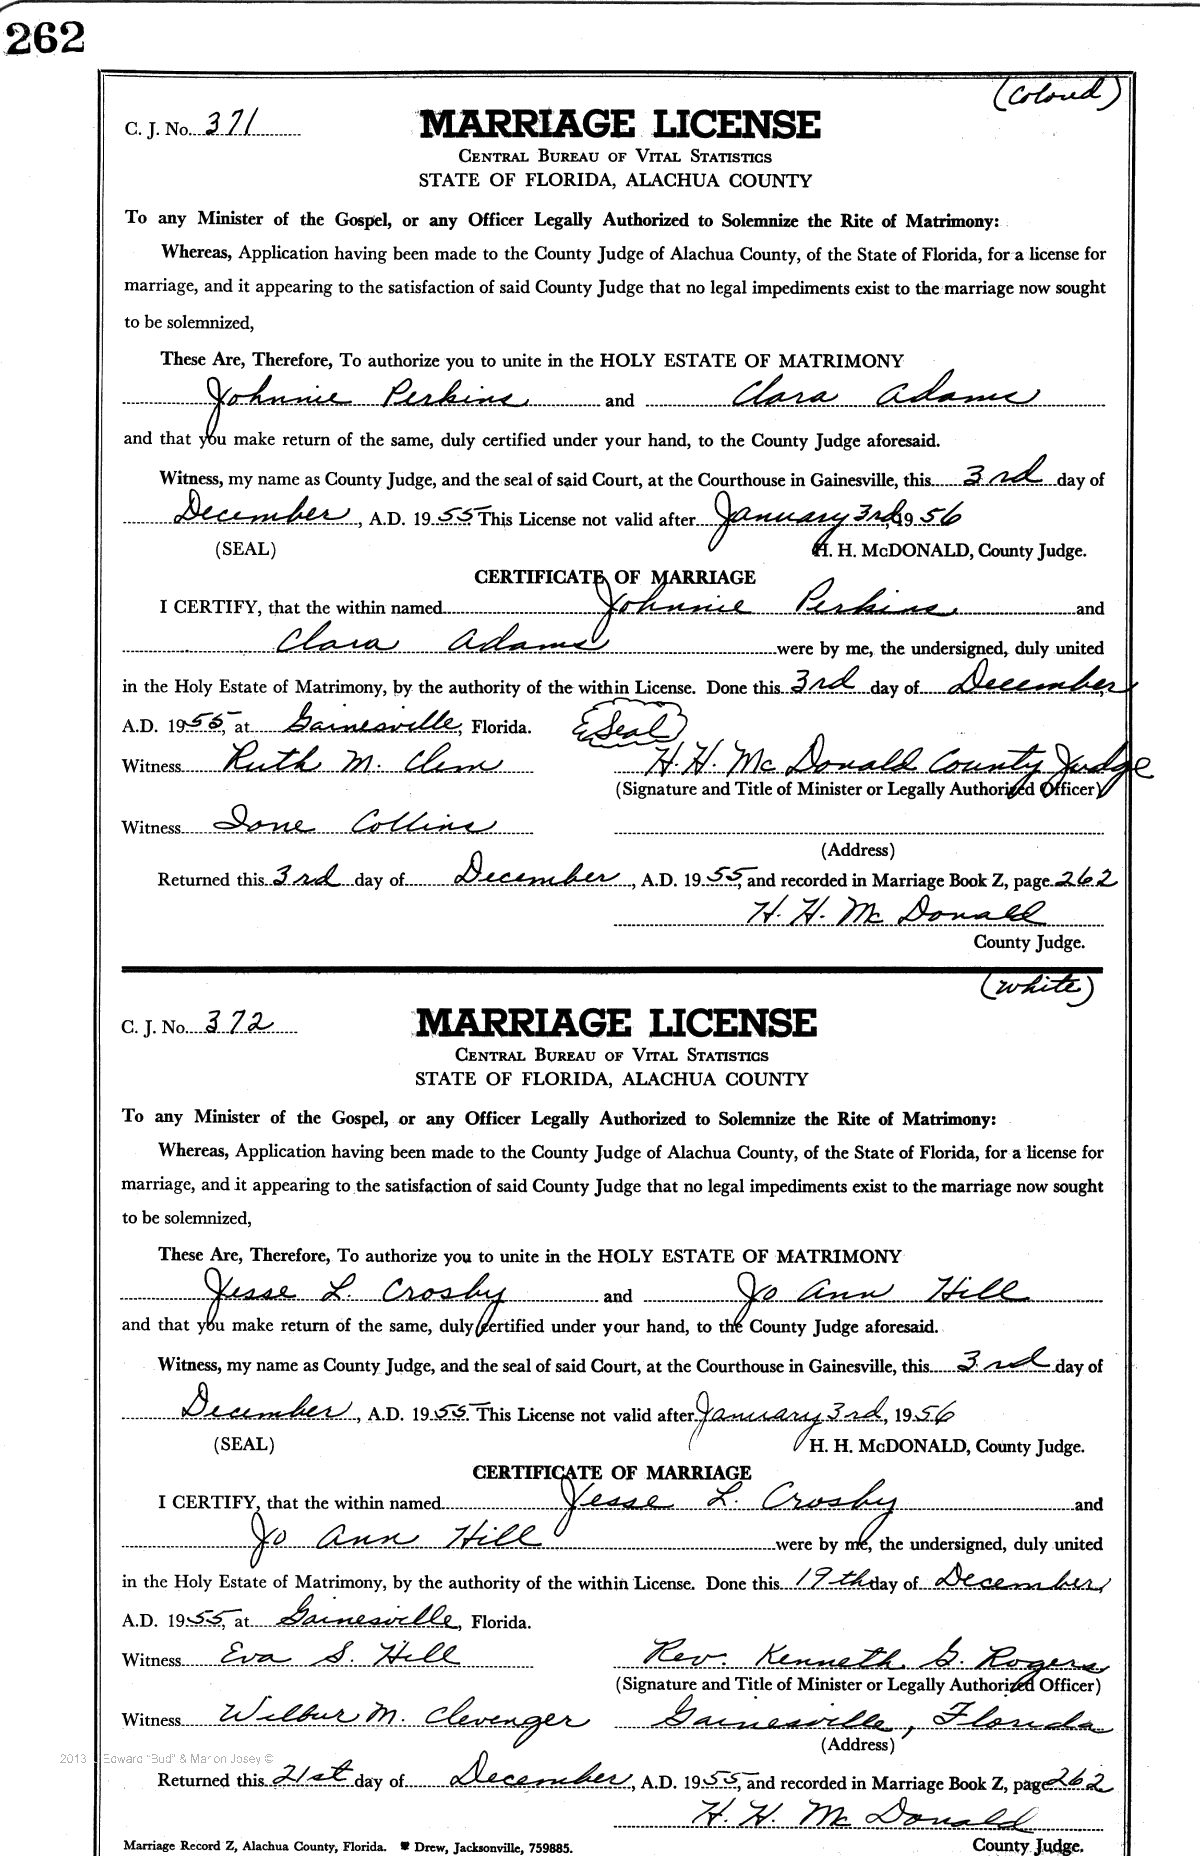 262
(Colored)
C. J. No. 371
MARRIAGE LICENSE
CENTRAL BUREAU OF VITAL STATISTICS
STATE OF FLORIDA, ALACHUA COUNTY
To any Minister of the Gospel, or any Officer Legally Authorized to Solemnize the Rite of Matrimony:
Whereas, Application having been made to the County Judge of Alachua County, of the State of Florida, for a license for
marriage, and it appearing to the satisfaction of said County Judge that no legal impediments exist to the marriage now sought
to be solemnized,
These Are, Therefore, To authorize you to unite in the HOLY ESTATE OF MATRIMONY
Johnnie Perkins and Clara Adams
and that you make return of the same, duly certified under your hand, to the County Judge aforesaid.
Witness, my name as County Judge, and the seal of said Court, at the Courthouse in Gainesville, this 3rd day of
December, A.D. 1955 This License not valid after January 3rd, 1956
(SEAL) H. H. McDONALD, County Judge.
CERTIFICATE OF MARRIAGE
I CERTIFY, that the within named Johnnie Perkins and
Clara Adams were by me, the undersigned, duly united
in the Holy Estate of Matrimony, by the authority of the within License. Done this 3rd day of December,
A.D. 1955, at Gainesville, Florida. Seal
Witness Ruth M. Clem H. H. McDonald County Judge
(Signature and Title of Minister or Legally Authorized Officer)
Witness Ione Collins
(Address)
Returned this 3rd day of December, A.D. 1955, and recorded in Marriage Book Z, page 262
H. H. McDonald
County Judge.
(White)
C. J. No. 372
MARRIAGE LICENSE
CENTRAL BUREAU OF VITAL STATISTICS
STATE OF FLORIDA, ALACHUA COUNTY
To any Minister of the Gospel, or any Officer Legally Authorized to Solemnize the Rite of Matrimony:
Whereas, Application having been made to the County Judge of Alachua County, of the State of Florida, for a license for
marriage, and it appearing to the satisfaction of said County Judge that no legal impediments exist to the marriage now sought
to be solemnized,
These Are, Therefore, To authorize you to unite in the HOLY ESTATE OF MATRIMONY
Jesse L. Crosby and Jo Ann Hill
and that you make return of the same, duly certified under your hand, to the County Judge aforesaid.
Witness, my name as County Judge, and the seal of said Court, at the Courthouse in Gainesville, this 3rd day of
December, A.D. 1955. This License not valid after January 3rd, 1956
(SEAL) H. H. McDONALD, County Judge.
CERTIFICATE OF MARRIAGE
I CERTIFY, that the within named Jesse L. Crosby and
Jo Ann Hill were by me, the undersigned, duly united
in the Holy Estate of Matrimony, by the authority of the within License. Done this 19th day of December,
A.D. 1955, at Gainesville, Florida.
Witness Eva S. Hill Rev. Kenneth G. Rogers
(Signature and Title of Minister or Legally Authorized Officer)
Witness Wilbur M. Clevenger Gainesville, Florida
(Address)
2013 Edward "Bud" & Marion Josey ©
Returned this 21st day of December, A.D. 1955, and recorded in Marriage Book Z, page 262
H. H. McDonald
Marriage Record Z, Alachua County, Florida. Drew, Jacksonville, 759885. County Judge.